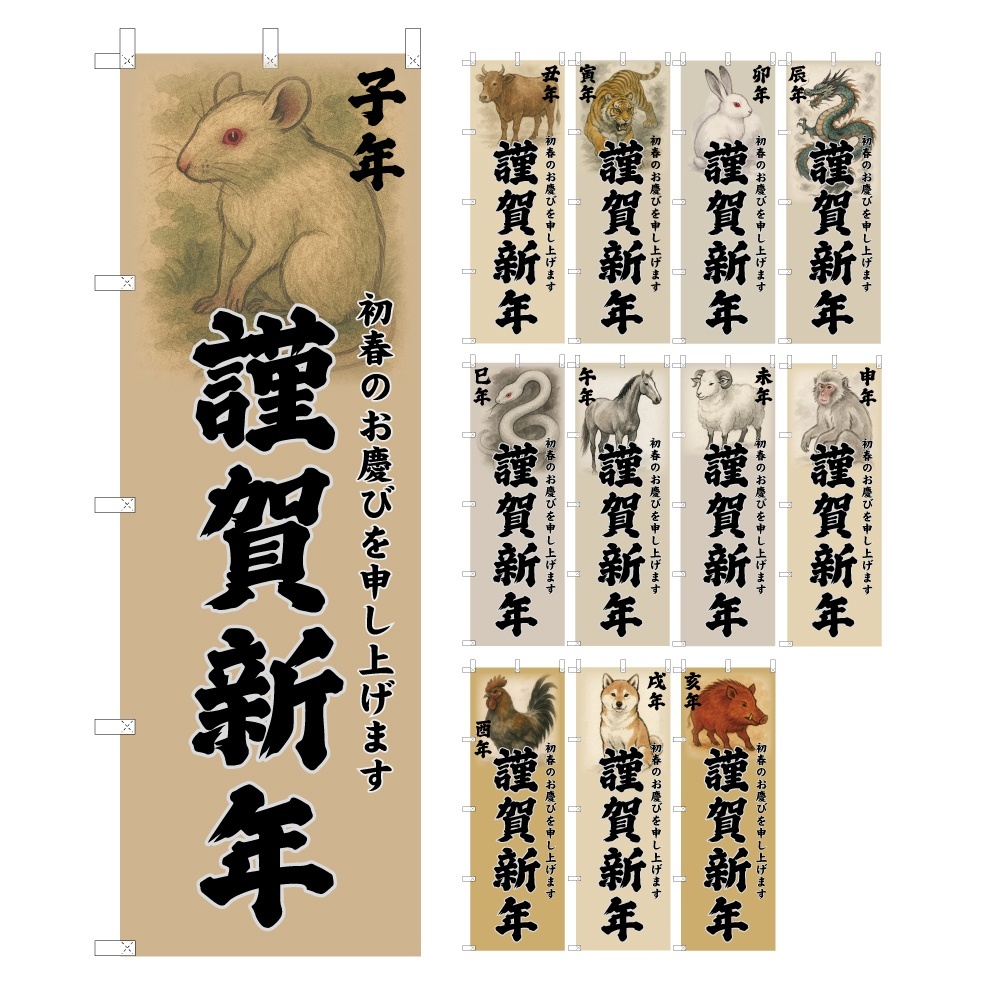 子年
初春のお慶びを申し上げます
謹賀新年
丑年
初春のお慶びを申し上げます
謹賀新年
寅年
初春のお慶びを申し上げます
謹賀新年
卯年
初春のお慶びを申し上げます
謹賀新年
辰年
初春のお慶びを申し上げます
謹賀新年
巳年
初春のお慶びを申し上げます
謹賀新年
午年
初春のお慶びを申し上げます
謹賀新年
未年
初春のお慶びを申し上げます
謹賀新年
申年
初春のお慶びを申し上げます
謹賀新年
酉年
初春のお慶びを申し上げます
謹賀新年
戌年
初春のお慶びを申し上げます
謹賀新年
亥年
初春のお慶びを申し上げます
謹賀新年